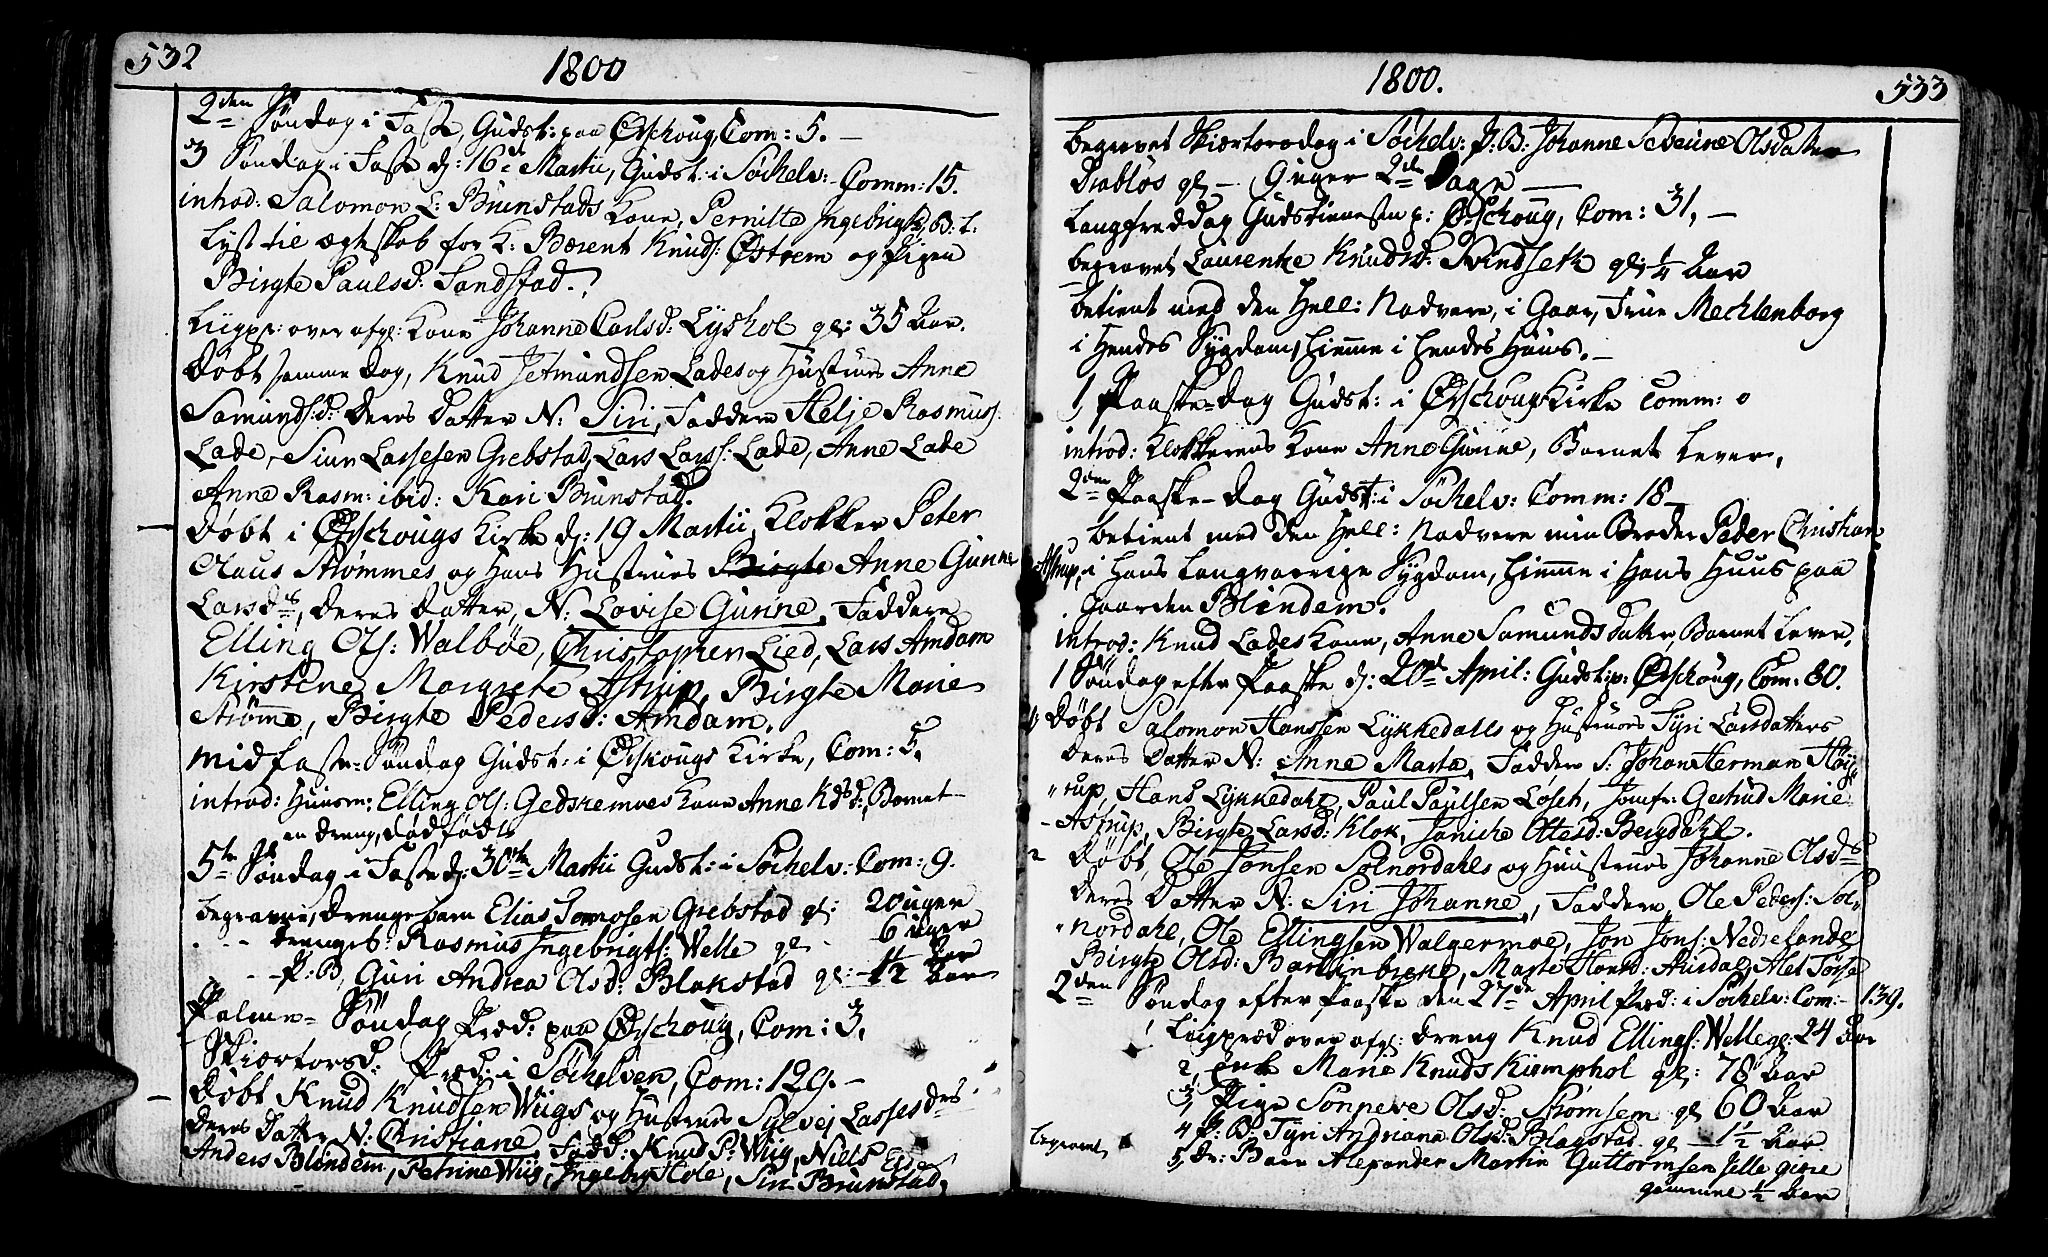 532
1800
2den Søndag i Faste, Gudst: paa Ørschoug, Com: 5. –
3 Søndag i Faste d: 16de Martii, Gudst: i Søchelv: – Comm: 15.
introd: Salomon L: Brunstads Kone, Pernille Ingebrigts, B: l:
Lyst til ægteskab for K: Bærent Knuds: Østrem og Pigen
Birgte Paulsd: Sandstad.
Liigpr: over afg: Kone Johanne Carlsd: Lyshol gl: 35 Aar.
Døbt samme Dag, Knud Jetmundsen Lades og Hustrues Anne
Samunds:d: deres Datter N: Siri, Faddere Helje Rasmus:
Lade, Siur Lassesen Grebstad, Lars Lars: Lade, Anne Lade
Anne Rasm: ibid: Kari Brunstad.
Døbt i Ørschougs Kirke d: 19 Martii, Klokker Peter
Olaus Strømmes og Hans Hustrues Birgte Anne Gunne
Larsd:s, deres Datter, N: Lovise Gunne, Faddere
Elling Ols: Walbøe, Christopher Lied, Lars Amdam
Kirstene Margrete Astrup, Birgte Marie
Strømme, Birgte Pedersd: Amdam.
Midfaste-Søndag Gudst: i Ørskougs Kirke, Com: 5.
introd: Huusm: Elling Ols: Gedsremoes Kone Anne Kds:d: Barnet
en dreng, dødfødt
5te Søndag i Faste d: 30te Martii Gudst: i Søchelv: Com: 9.
begravne, drengebarn Elias Grebstad gl: 20 uger
drengeb: Rasmus Ingebrigts: Welle gl – 6 uger
P: B, Guri Andrea Olsd: Blakstad gl: – 1½ Aar
Palme-Søndag Præd: paa Ørschoug, Com: 3.
Skiærtorsd: Præd: i Søchelven, Com: 129. –
Døbt Knud Knudsen Wiigs og Hustrues Sylvej Lasses des
deres Datter N: Christiane, Fadd: Knud P: Wiig, Niels
Anders Blindem, Petrine Wiig, Ingeborg Hole, Siri Brunstad,
1800.
533
begravet Skiærtorsdag i Søchelv: P: B: Johanne Severine Olsdatter
Drabløs gl – 9 uger 2de Dage –
Langfreddag Gudstienesten p: Ørschoug, Com: 31, –
begravet Laurentze Knudsd: Svindseth gl: ¼ Aar
betient med den Hell: Nadvere, i Gaar, Frue Mechlenborg
i Hendes Sygdom, hiemme i hendes Huus. –
1, Paaske-Dag Gudst: i Ørschoug Kirke Comm: 0
introd: Klokkerens Kone Anne Gunne, Barnet lever,
2den Paaske-Dag Gudst: i Søchelv: Comm: 18 –
betient med den Hell: Nadvere min Broder Peder Christian
Astrup, i Hans langvarige Sygdom, hiemme i Hans Huus paa
Gaarden Blindem.
introd: Knud Lades Kone, Anne Samunds Datter, Barnet lever.
1 Søndag efter Paaske d: 20de April: Gudst: p: Ørschoug, Com: 80.
1, Døbt Salomon Hanssen Lykkedalls og Hustrues Syri Larsdatters
deres Datter N: Anne Marta, Faddere S: Johan Herman Høy
rup, Hans Lykkedahl, Paul Paulsen Løset, Jomfr: Gertrud Marie
Astrup, Birgte Larsd: Klok, Janiche Ottesd: Bergdahl.
2 Døbt, Ole Jonsen Solnordahls og Huustrues Johanne Olsd:s
deres Datter N: Siri Johanne, Faddere Ole Peders: Sol
nordahl, Ole Ellingsen Walgermoe, Jon Jons: Nedrelande
Birgte Olsd: Marte
2den Søndag efter Paaske den 27de April Præd: i Søchelv: Com: – 139.
1 Liigpræd over afg: dreng Knud Ellings: Welle gl: 24 Aar
2, Enke Marie Knuds Kiemphol gl: 78 Aar
3, Pige Sønneve Olsd: Strømsem gl 60 Aar
begravet 4 P: B: Syri Andriana Olsd: Blagstad gl – 1½ Aar.
5, Dr: Barn Alexander Martin Guttormsen
gammel ½ Aar